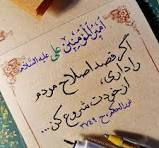 امیرالمؤمنین علی علیه السلام
اگر قصد اصلاح مردم
را داری،
از خودت شروع کن...
غررالحکم ح ۳۷۴۹